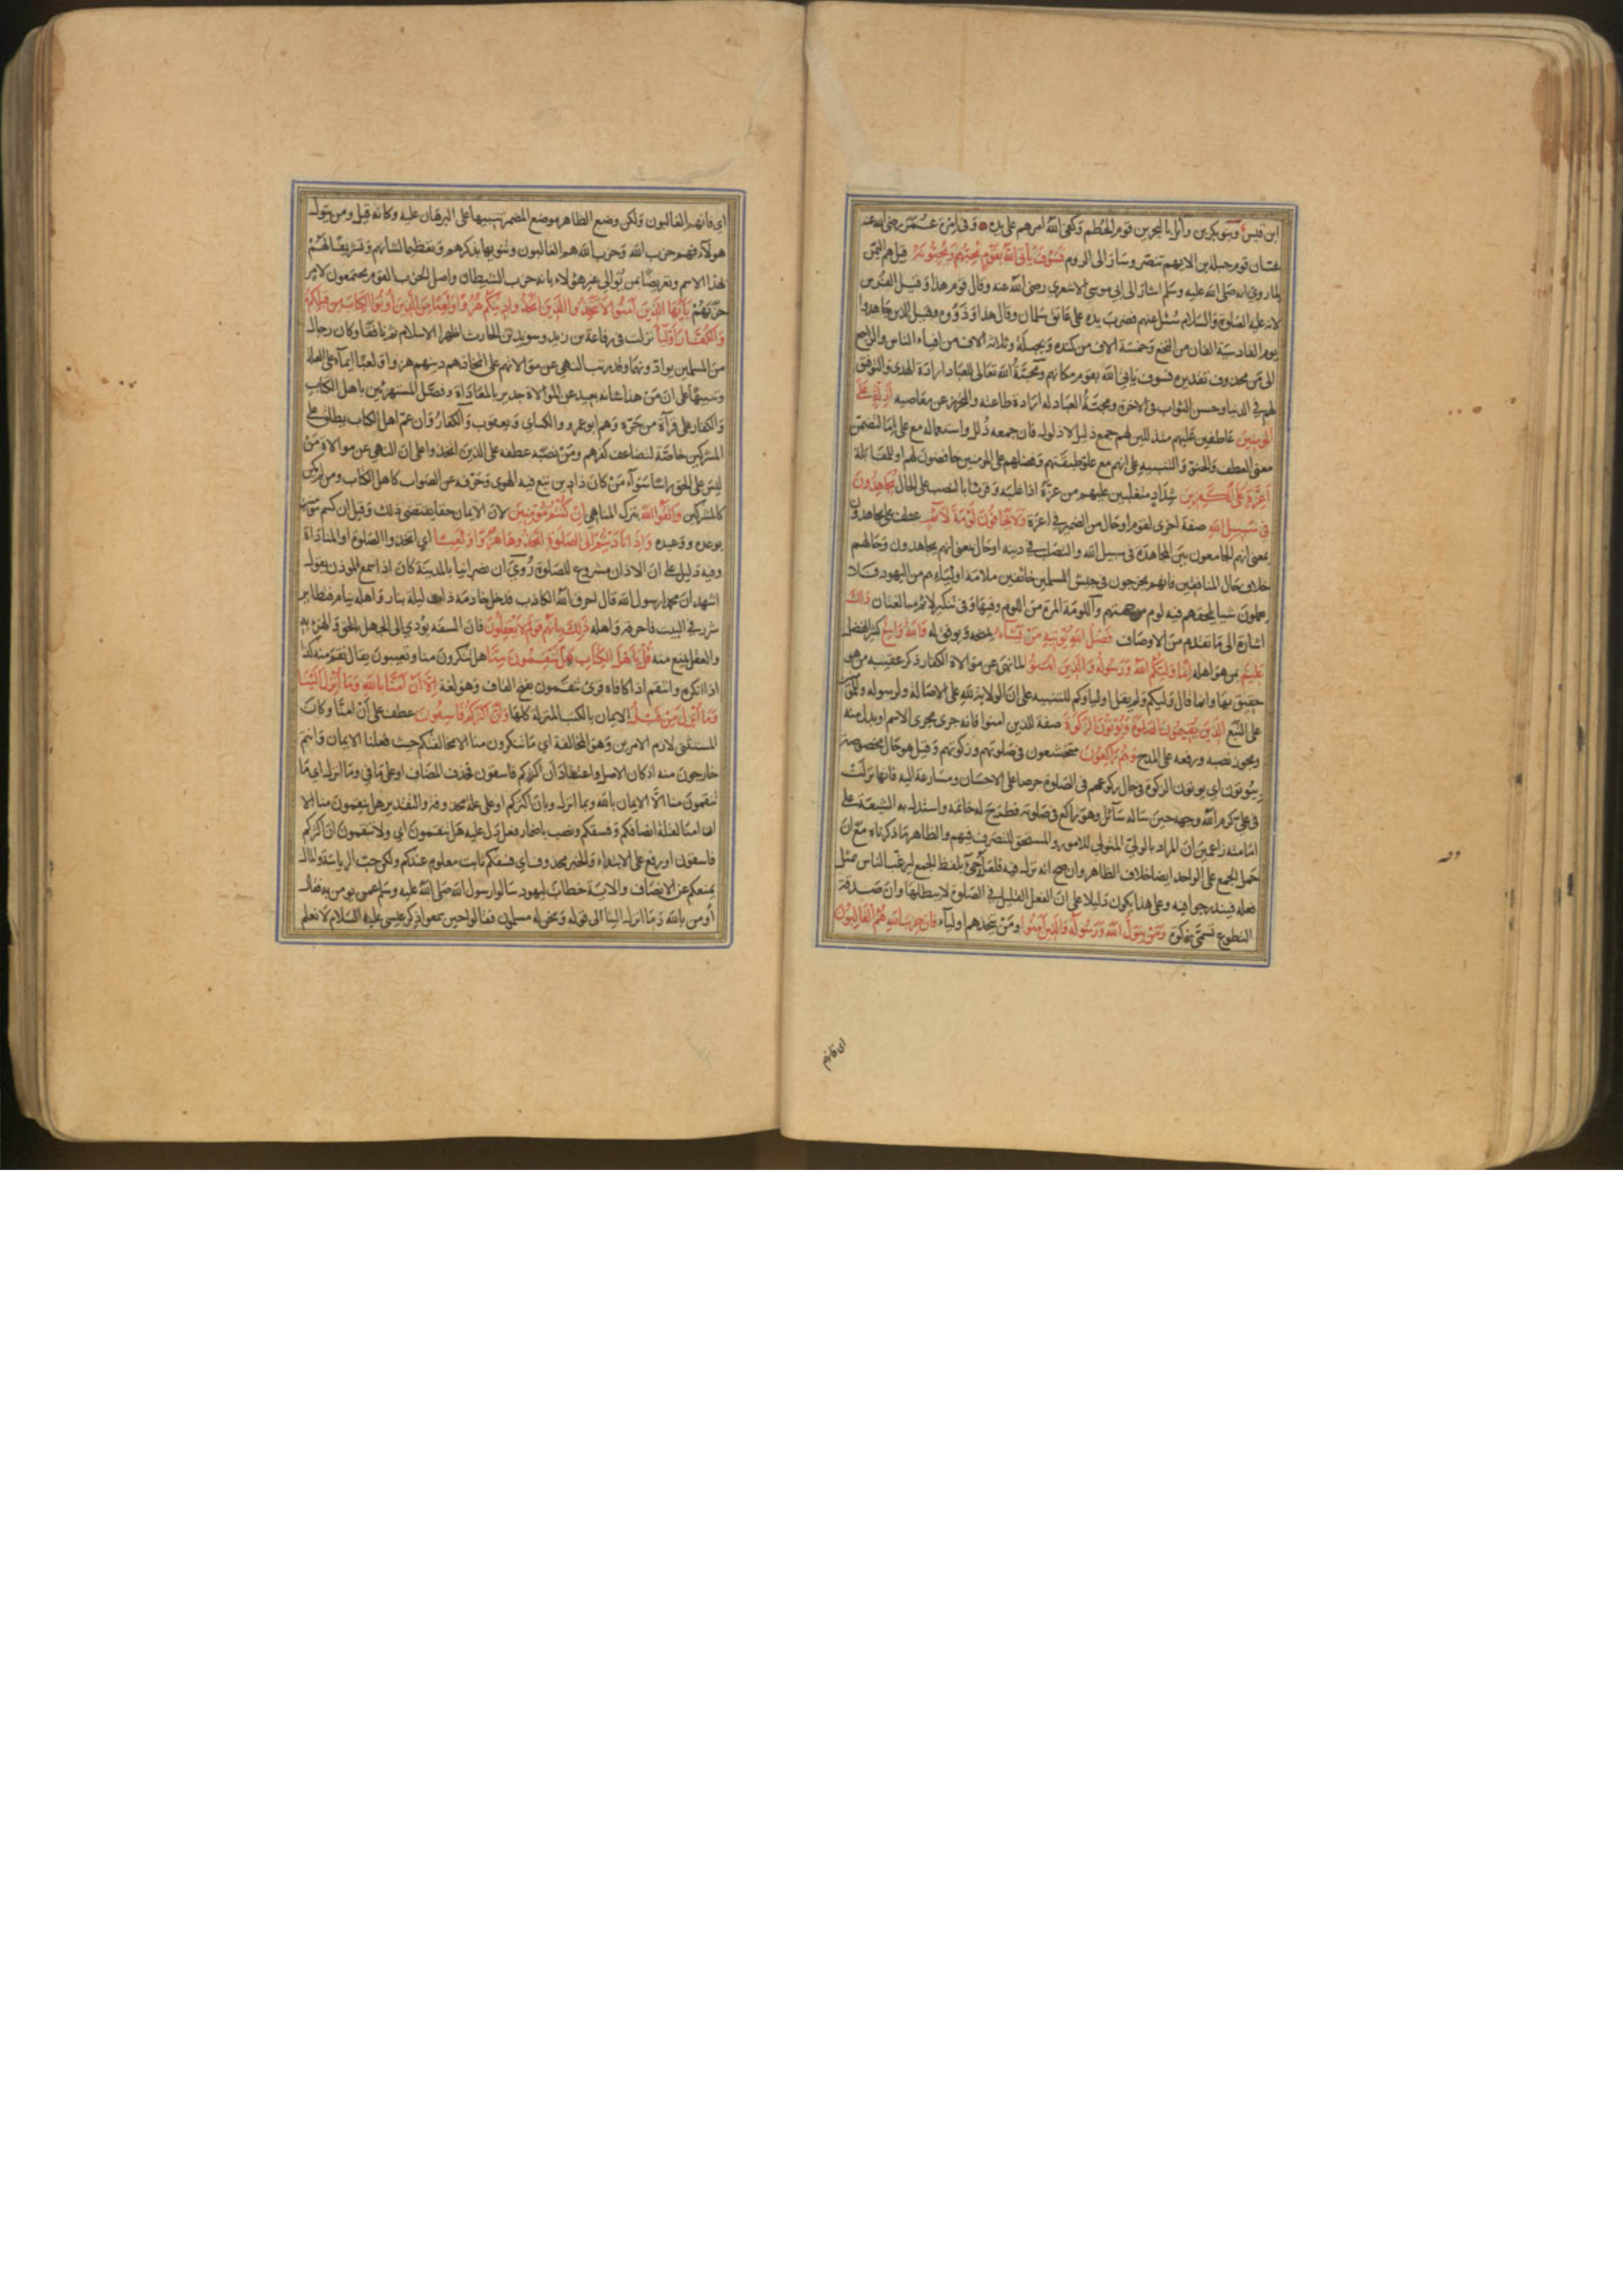 ابن قيس وبنو بكر بن وائل بالبحرين قوم الحطم وكفى الله امرهم على يده وفى امرة عمر رضى الله عنه
غسان قوم جبلة بن الايهم تنصر وسار الى الروم فسوف ياتى الله بقوم يحبهم ويحبونه قيل هم اليمن
لما روي انه صلى الله عليه وسلم اشار الى ابي موسى الاشعري رضى الله عنه وقال قوم هذا وقيل الفرس
لانه عليه الصلوة والسلام سئل عنهم فضرب يده على عاتق سلمان وقال هذا وذووه وقيل الذين جاهدوا
يوم القادسية الفان من النخع وخمسة الاف من كندة وبجيلة وثلاثة الاف من افناء الناس والراجع
الى من محذوف تقديره فسوف ياتى الله بقوم مكانهم ومحبة الله تعالى للعباد ارادة الهدى والتوفيق
لهم في الدنيا وحسن الثواب في الاخرة ومحبة العباد له ارادة طاعته والتحرز عن معاصيه اذلة على
المومنين عاطفين عليهم متذللين لهم جمع ذليل لا ذلول فان جمعه ذلل واستعماله مع على اما لتضمن
معنى العطف والحنو والتنبيه على انهم مع علو طبقتهم وفضلهم على المومنين خافضون لهم او للمقابلة
اعزة على الكافرين شداد متغلبين عليهم من عزه اذا غلبه وقرئ بالنصب على الحال يجاهدون
في سبيل الله صفة اخرى لقوم او حال من الضمير في اعزة ولا يخافون لومة لائم عطف على يجاهدون
بمعنى انهم الجامعون بين المجاهدة فى سبيل الله والتصلب في دينه او حال بمعنى انهم يجاهدون وحالهم
خلاف حال المنافقين فانهم يخرجون في جيش المسلمين خائفين ملامة اوليائهم من اليهود فلا
يعملون شيا يلحقهم فيه لوم من جهتهم واللومة المرة من اللوم وفيها وفى تنكير لائم مبالغتان ذلك
اشارة الى ما تقدم من الاوصاف فضل الله يوتيه من يشاء يمنحه ويوفق له والله واسع كثير الفضل
عليم بمن هو اهله انما وليكم الله ورسوله والذين امنوا لما نهى عن موالاة الكفار ذكر عقيبه من هو
حقيق بها وانما قال وليكم ولم يقل اولياوكم للتنبيه على ان الولاية لله على الاصالة ولرسوله وللمومنين
على التبع الذين يقيمون الصلوة ويوتون الزكوة صفة للذين امنوا فانه جرى مجرى الاسم او بدل منه
ويجوز نصبه ورفعه على المدح وهم راكعون متخشعون في صلوتهم وزكوتهم وقيل هو حال مخصوصة
بيوتون اي يوتون الزكوة في حال ركوعهم فى الصلوة حرصا على الاحسان ومسارعة اليه فانها نزلت
فى علي كرم الله وجهه حين ساله سائل وهو راكع في صلوته فطرح له خاتمه واستدل به الشيعة على
امامته زاعمين ان المراد بالولي المتولي للامور والمستحق للتصرف فيهم والظاهر ما ذكرناه مع ان
حمل الجمع على الواحد ايضا خلاف الظاهر وان صح انه نزل فيه فلعله جئ بلفظ الجمع ليرغب الناس مثل
فعله فيندرجوا فيه وعلى هذا يكون دليلا على ان الفعل القليل في الصلوة لا يبطلها وان صدقة
التطوع تسمى زكوة ومن يتول الله ورسوله والذين امنوا ومن يتخذهم اولياء فان حزب الله هم الغالبون
اى فانهم
اي فانهم الغالبون ولكن وضع الظاهر موضع المضمر تنبيها على البرهان عليه وكانه قيل ومن يتول
هولاء فهم حزب الله وحزب الله هم الغالبون وتنويها بذكرهم وتعظيما لشانهم وتشريفا لهم
بهذا الاسم وتعريضا بمن يوالي غير هؤلاء بانه حزب الشيطان واصل الحزب القوم يجتمعون لامر
حزبهم يايها الذين آمنوا لا تتخذوا الذين اتخذوا دينكم هزوا ولعبا من الذين اوتوا الكتاب من قبلكم
والكفار اولياء نزلت فى رفاعة بن زيد وسويد بن الحارث اظهرا الاسلام ثم نافقا وكان رجال
من المسلمين يوادونهما وقد رتب النهى عن موالاتهم على اتخاذهم دينهم هزوا ولعبا ايماء على العلة
وتنبيها على ان من هذا شانه بعيد عن الموالاة جدير بالمعاداة وفصل المستهزئين باهل الكتاب
والكفار على قراءة من جره وهم ابو عمرو والكساي ويعقوب والكفار وان عم اهل الكتاب يطلق على
المشركين خاصة لتضاعف كفرهم ومن نصبه عطفه على الذين اتخذوا على ان النهى عن موالاة من
ليس على الحق راسا سواء من كان ذا دين تبع فيه الهوى وحرفه عن الصواب كاهل الكتاب ومن لم يكن
كالمشركين واتقوا الله بترك المناهي ان كنتم مومنين لان الايمان حقا يقتضي ذلك وقيل ان كنتم مومنين
بوعده ووعيده واذا ناديتم الى الصلوة اتخذوها هزوا ولعبا اي اتخذوا الصلوة او المناداة
وفيه دليل على ان الاذان مشروع للصلوة روي ان نصرانيا بالمدينة كان اذا سمع الموذن يقول
اشهد ان محمدا رسول الله قال احرق الله الكاذب فدخل خادمه ذات ليلة بنار واهله نيام فتطاير
شرر في البيت فاحرقه واهله ذلك بانهم قوم لا يعقلون فان السفه يودي الى الجهل بالحق والهزء به
والعقل يمنع منه قل يا اهل الكتاب هل تنقمون منا هل تنكرون منا وتعيبون يقال نقم منه كذا
اذا انكره وانتقم اذا كافاه وقرئ تنقمون بفتح القاف وهو لغة الا ان آمنا بالله وما انزل الينا
وما انزل من قبل الايمان بالكتب المنزلة كلها وان اكثركم فاسقون عطف على ان امنا وكان
المستثنى لازم الامرين وهو المخالفة اي ما تنكرون منا الا مخالفتكم حيث دخلنا الايمان وانتم
خارجون منه او كان الاصل واعتقاد ان اكثركم فاسقون فحذف المضاف او على ما في وما انزل اي ما
تنقمون منا الا الايمان بالله وبما انزل وبان اكثركم او على علة محذوفة والتقدير هل تنقمون منا الا
ان امنا لقلة انصافكم وفسقكم ونصب باضمار فعل دل عليه هل تنقمون اي ولا تنقمون ان اكثركم
فاسقون او رفع على الابتداء والخبر محذوف اي فسقكم ثابت معلوم عندكم ولكن حب الرياسة والمال
يمنعكم عن الانصاف والاية خطاب ليهود سالوا رسول الله صلى الله عليه وسلم عمن يومن به فقال
أومن بالله وما انزل الينا الى قوله ونحن له مسلمون فقالوا حين سمعوا ذكر عيسى عليه السلام لا نعلم